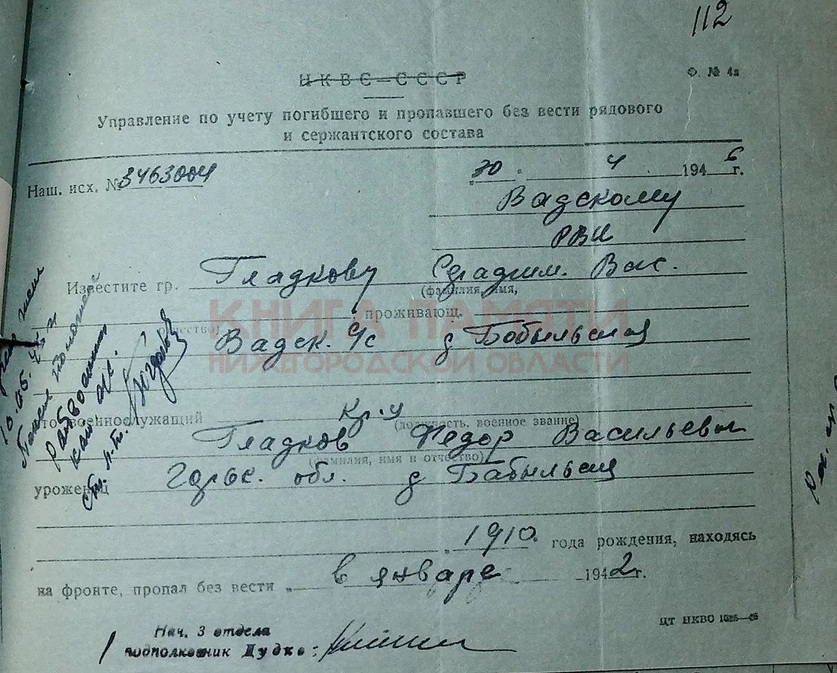 112
НКВС–СССР
Ф. № 4а
Управление по учету погибшего и пропавшего без вести рядового
и сержантского состава
Наш. исх. № 3463004 „30" 4 1946 г.
Вадскому
РВК
Известите гр. Гладкову Вас.
(фамилия, имя,
отчество) проживающ.
Вадск. с/с д Бобыльская
КНИГА ПАМЯТИ
НИЖЕГОРОДСКОЙ ОБЛАСТИ
что военнослужащий кр-ц
(должность, военное звание)
Гладков Федор Васильевич
(фамилия, имя и отчество)
уроженец Горьк. обл. д Бабыльская
1910 года рождения, находясь
на фронте, пропал без вести „ в январе 1942 г.
Нач. 3 отдела
подполковник Дудко: